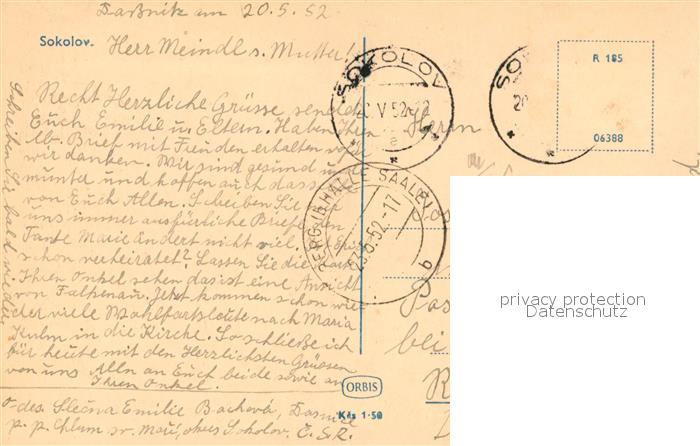 Daßnitz am 20.5.52
Sokolov.
Herr Meindl s. Mutter!
Recht Herzliche Grüsse sendet
Euch Emilie u. Eltern. Haben Ihren
lb. Brief mit Freuden erhalten
wir danken. Wir sind gesund u.
munter und hoffen auch dasselbe
von Euch Allen. Schreiben Sie
uns immer ausfürliche Briefe
Tante Marie ändert nicht viel. ist
schon verheiratet? Lassen Sie die
Ihren Onkel sehen das ist eine Ansicht
von Falkenau. Jetzt kommen schon wie
der viele Wahlfartsleute nach Maria
Kulm in die Kirche. So schließe ich
für heute mit den Herzlichsten Grüssen
von uns Alln an Euch beide sowie an
Ihren Onkel.
Schreiben Sie bald wieder
o-des. Slečna Emilie Bachová,
p. p. Chlum sv. Maří, okres Sokolov. Č.S.R.
SOKOLOV
V 52
a
SO
20
R 185
06388
Herrn
(HALLE SAALE)
23.5.52.-17
b
bei
ORBIS
Kčs 1·50
privacy protection
Datenschutz